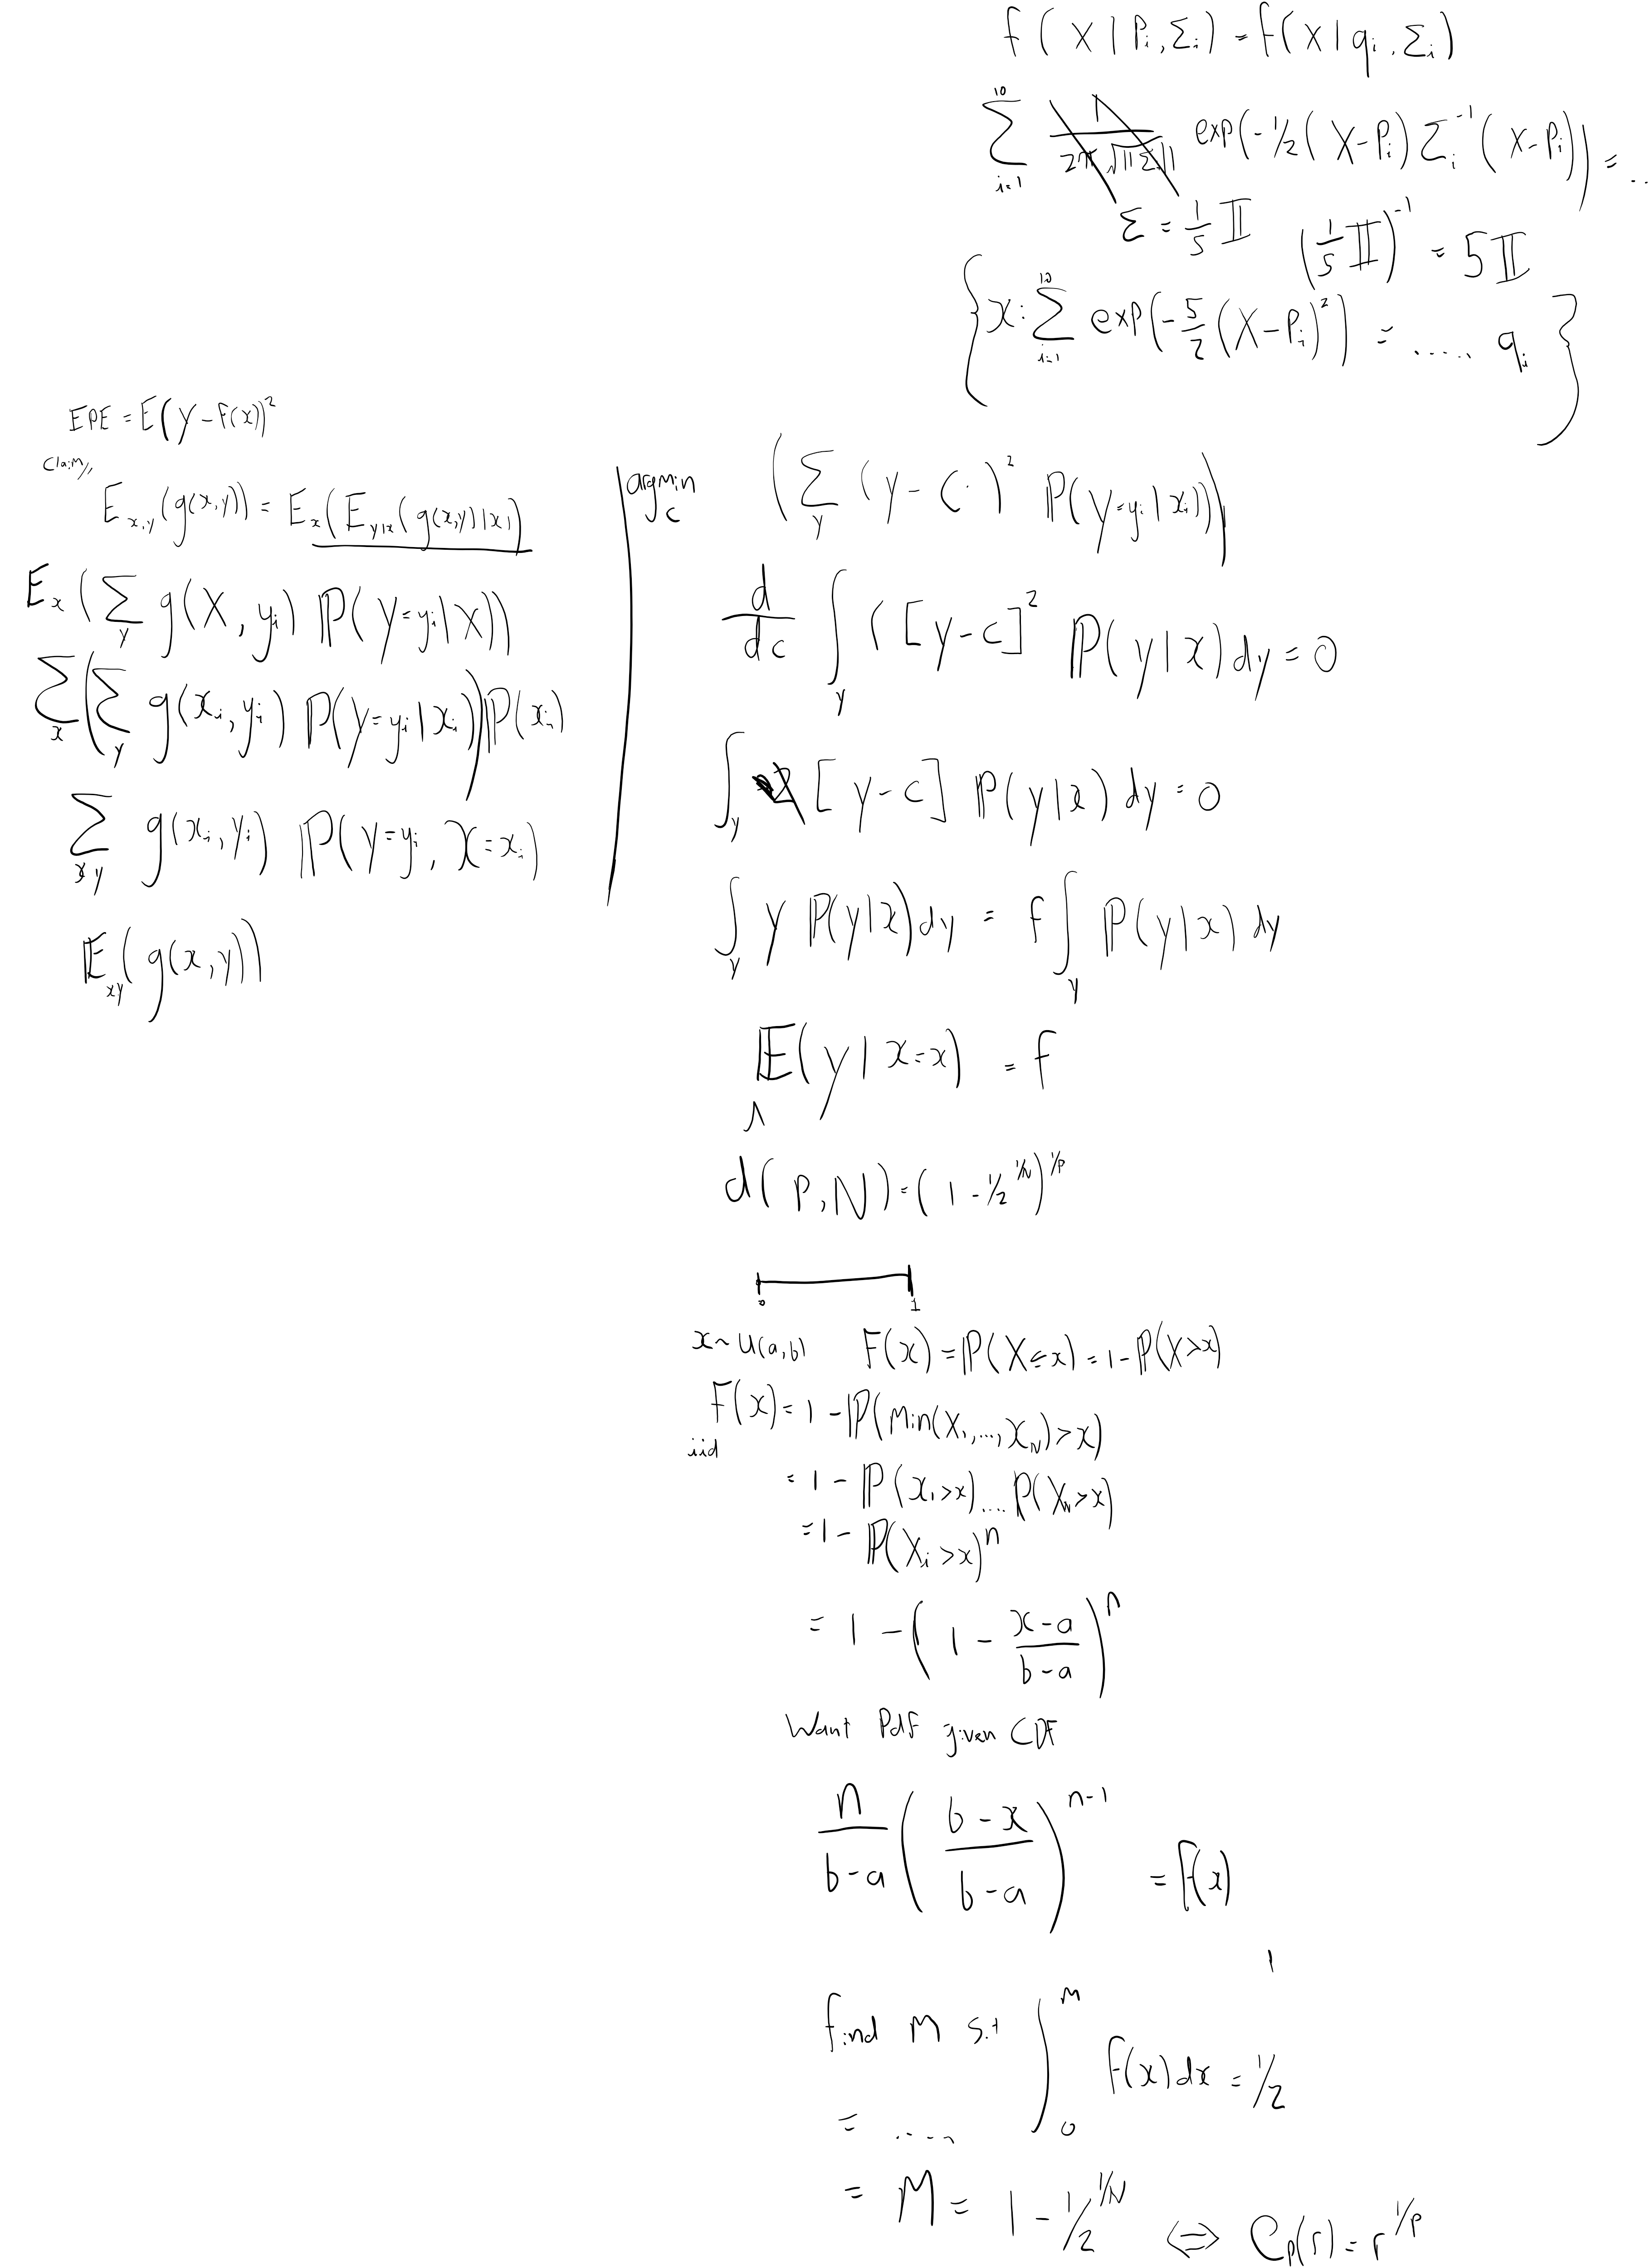 f(X|P_i,Σ_i) = f(X|q_i,Σ_i)
\sum_{i=1}^{10} \frac{1}{2π\sqrt{||Σ_i||}} exp(-1/2(X-P_i)Σ_i^{-1}(X-P_i)) = ..
Σ = \frac{1}{5}𝕀 (\frac{1}{5}𝕀)^{-1} = 5𝕀
{x: \sum_{i=1}^{10} exp(-\frac{5}{2}(X-P_i)^2) = ..... q_i}
EPE = E(y-f(x))^2
Claim,,
E_{x,y}(g(x,y)) = E_x(E_{y|x}(g(x,y)|x))
E_x(\sum_y g(X,y_i) ℙ(Y=y_i|X))
\sum_x(\sum_y g(x_i,y_i) ℙ(Y=y_i|x_i))ℙ(x_i)
\sum_{xy} g(x_i,y_i) ℙ(Y=y_i, X=x_i)
𝔼_{xy}(g(x,y))
argmin_c (\sum_y (y-c)^2 ℙ(Y=y_i|x_i))
\frac{d}{dc} \int_y ([y-c]^2 ℙ(y|x)dy = 0
\int_y [y-c] ℙ(y|x) dy = 0
\int_y y ℙ(y|x)dy = f \int_y ℙ(y|x) dy
𝔼(y|x=x) = f
d(P,N) = (1-1/2^{1/N})^{1/P}
0 1
x~U(a,b) F(x) = ℙ(X≤x) = 1-ℙ(X>x)
F(x) = 1-ℙ(min(X_1,...,X_N)>x)
iid
= 1-ℙ(x_1>x)....ℙ(X_N>x)
= 1-ℙ(X_i>x)^n
= 1-(1-\frac{x-a}{b-a})^n
Want Pdf given CDF
\frac{n}{b-a}(\frac{b-x}{b-a})^{n-1} = f(x)
find M s.t \int_0^M f(x)dx = 1/2
= ....
= M = 1-1/2^{1/N} ⇔ e_p(r) = r^{1/P}